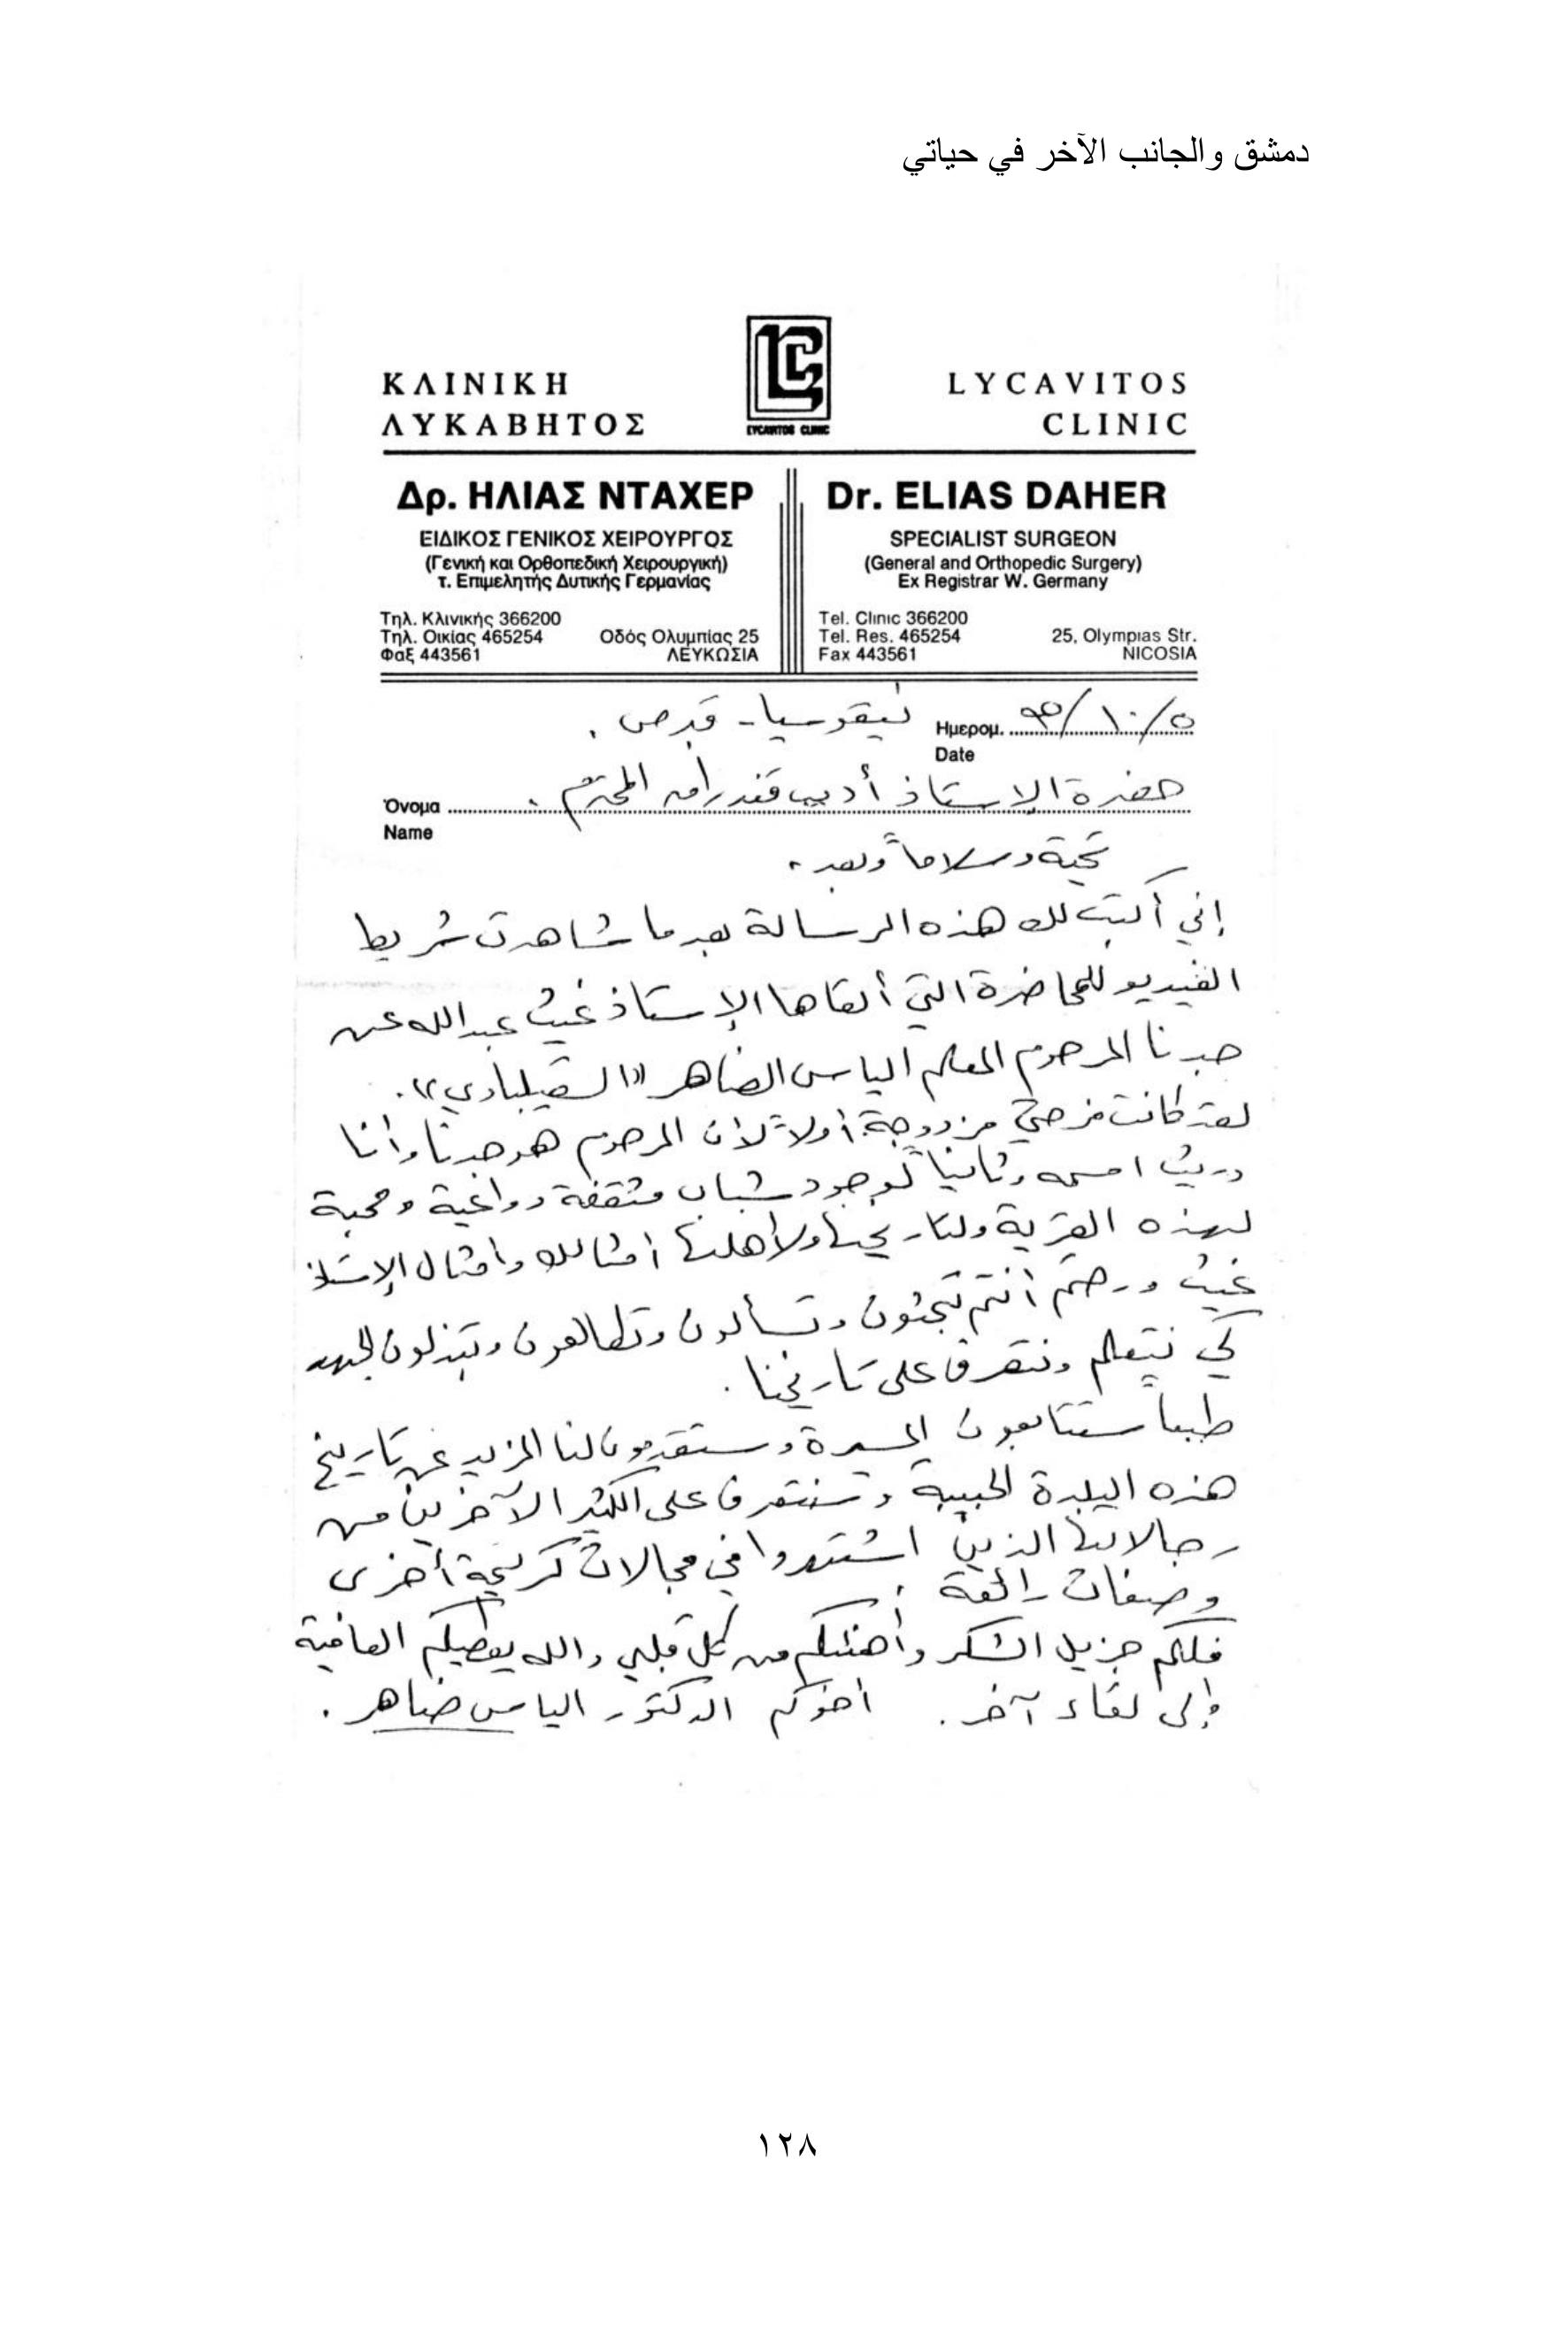 دمشق والجانب الآخر في حياتي
ΚΛΙΝΙΚΗ
ΛΥΚΑΒΗΤΟΣ
LYCAVITOS CLINIC
LYCAVITOS
CLINIC
Δρ. ΗΛΙΑΣ ΝΤΑΧΕΡ
ΕΙΔΙΚΟΣ ΓΕΝΙΚΟΣ ΧΕΙΡΟΥΡΓΟΣ
(Γενική και Ορθοπεδική Χειρουργική)
τ. Επιμελητής Δυτικής Γερμανίας
Τηλ. Κλινικής 366200
Τηλ. Οικίας 465254 Οδός Ολυμπίας 25
Φαξ 443561 ΛΕΥΚΩΣΙΑ
Dr. ELIAS DAHER
SPECIALIST SURGEON
(General and Orthopedic Surgery)
Ex Registrar W. Germany
Tel. Clinic 366200
Tel. Res. 465254 25, Olympias Str.
Fax 443561 NICOSIA
Ημερομ. ٩٥/١٠/٥ نيقوسيا - قبرص .
Date
حضرة الإستاذ أديب قندراق المحترم . Όνομα
Name
تحية وسلاماً وبعد ،
إني أكتب لك هذه الرسالة بعدما شاهدت شريط
الفيديو للمحاضرة التي ألقاها الإستاذ غيث عبدالله عن
جدنا المرحوم المعلم الياس الضاهر "السقيلبادي" .
لقد كانت فرحتي مزدوجة أولاً لان المرحوم هو جدنا وانا
وريث اسمه وثانياً لوجود شباب مثقفة وواعية ومحبة
لهذه القرية ولتاريخها ولأهلها أمثالك وامثال الإستاذ
غيث ورحتم انتم تبحثون وتسألون وتطالعون وتبذلون الجهد
كي نتعلم ونتعرف على تاريخنا .
طبعاً ستتابعون المسيرة وستقدمون لنا المزيد عن تاريخ
هذه البلدة الحبيبة وسنتعرف على الكثير الآخرين من
رجالاتها الذين اشتهروا في مجالات كريمة أخرى
وصفات رائعة .
فلكم جزيل الشكر وأهنئكم من كل قلبي والله يعطيكم العافية
وإلى لقاء آخر . اخوكم الدكتور الياس ضاهر .
١٢٨